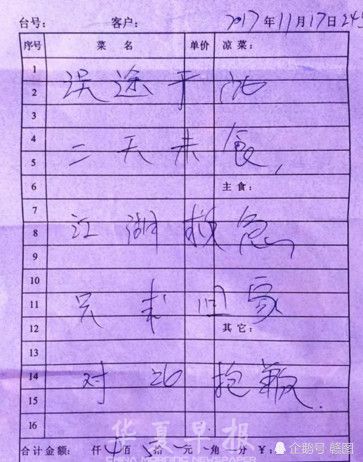 台号: 客户: 2017年11月17日
序号 菜名 单价 凉菜:
1
2 误途于此
3
4 二天未食,
5
6 主食:
7
8 江湖救急
9
10
11 只求回家
12 其它:
13
14 对此抱歉.
15
16
合计金额: 仟 佰 拾 元 角 分 ¥:
华夏早报
企鹅号 赣图